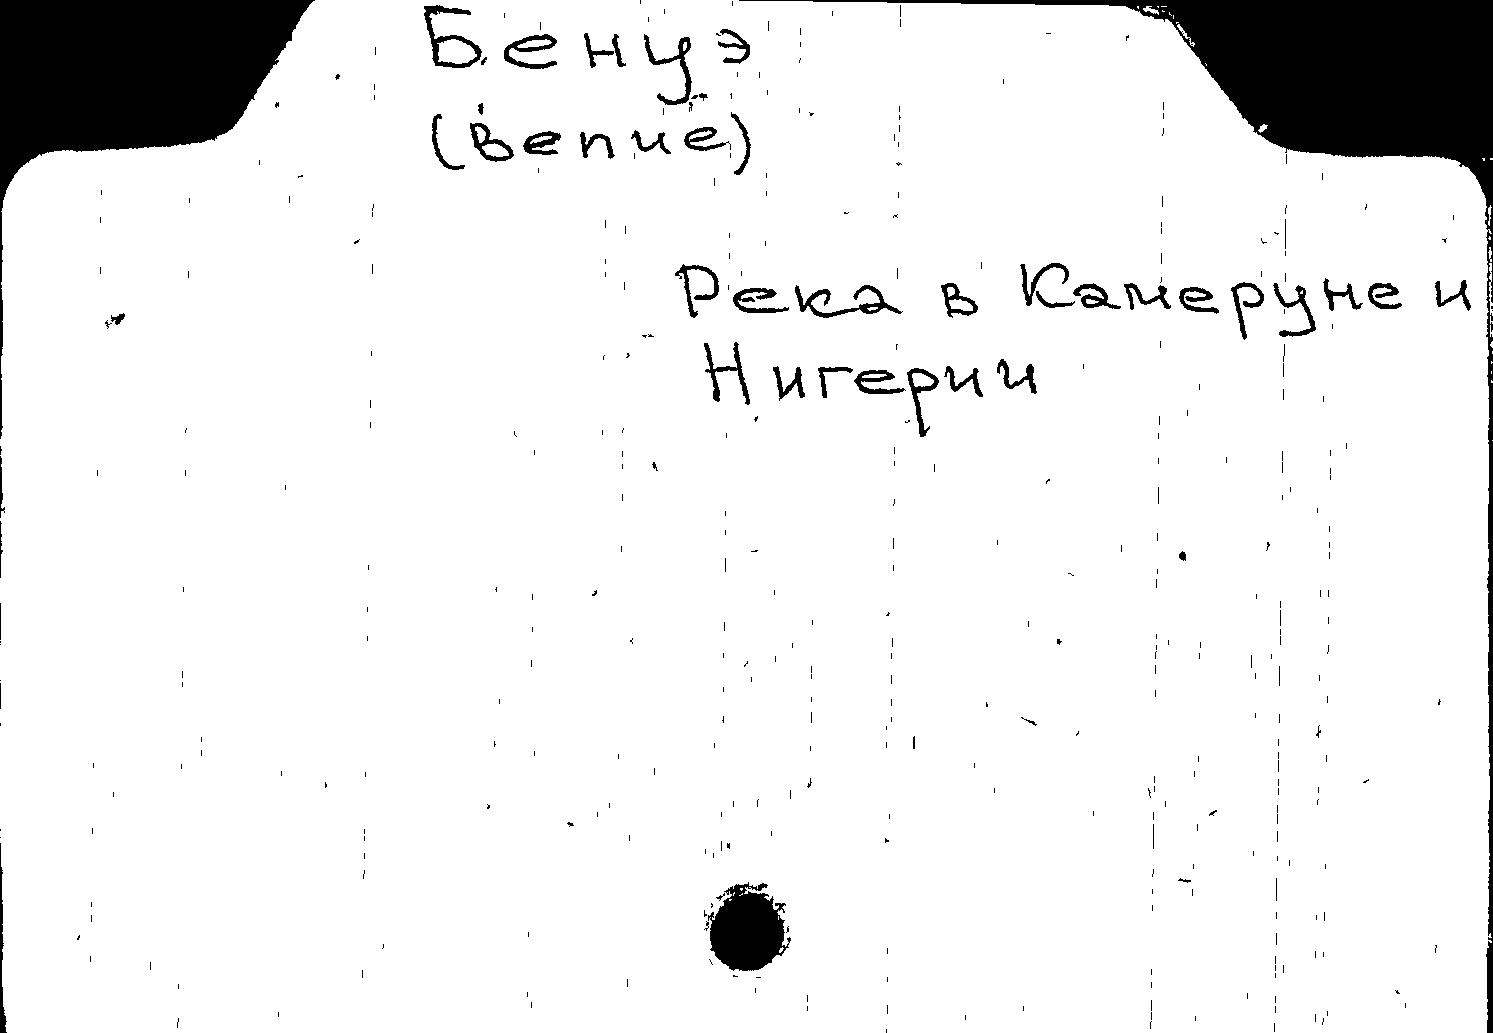 Бенуэ
(Benue)
Река в Камеруне и
Нигерии